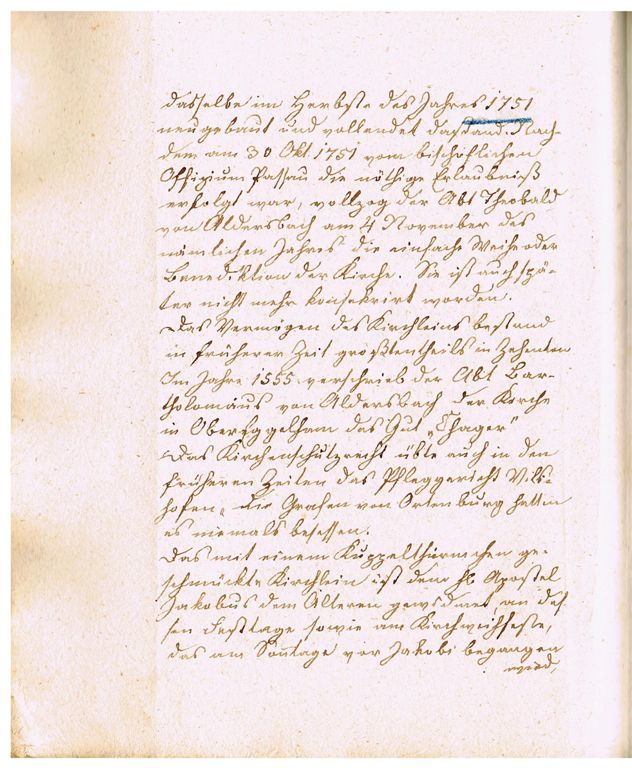 dasselbe im Herbste des Jahres 1751
neugebaut und vollendet dastand. Nach-
dem am 30 Okt. 1751 vom bischöflichen
Offizium Passau die nöthige Erlaubniß
erfolgt war, vollzog der Abt Theobald
von Aldersbach am 4 November des
nämlichen Jahres die einfache Weihe oder
Benediktion der Kirche. Sie ist auch spä-
ter nicht mehr konsekrirt worden.
Das Vermögen des Kirchleins bestand
in früherer Zeit großtentheils in Zehenten
Im Jahre 1555 verschrieb der Abt Bar-
tholomäus von Aldersbach der Kirche
in Obereggelham das Gut „Thager"
Das Kirchenschutzrecht übte auch in den
früheren Zeiten das Pfleggericht Vils-
hofen, die Grafen von Ortenburg hatten
es niemals besessen.
Das mit einem Kuppelthürmchen ge-
schmückte Kirchlein ist dem hl. Apostel
Jakobus dem Älteren gewidmet, an des-
sen Festtage sowie am Kirchweihfeste,
das am Sontage vor Jakobi begangen
wird,